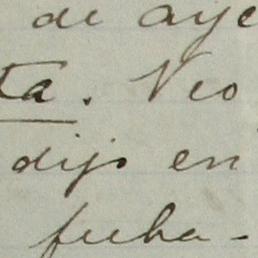 de aye
ta. Veo
dijo en
fecha-